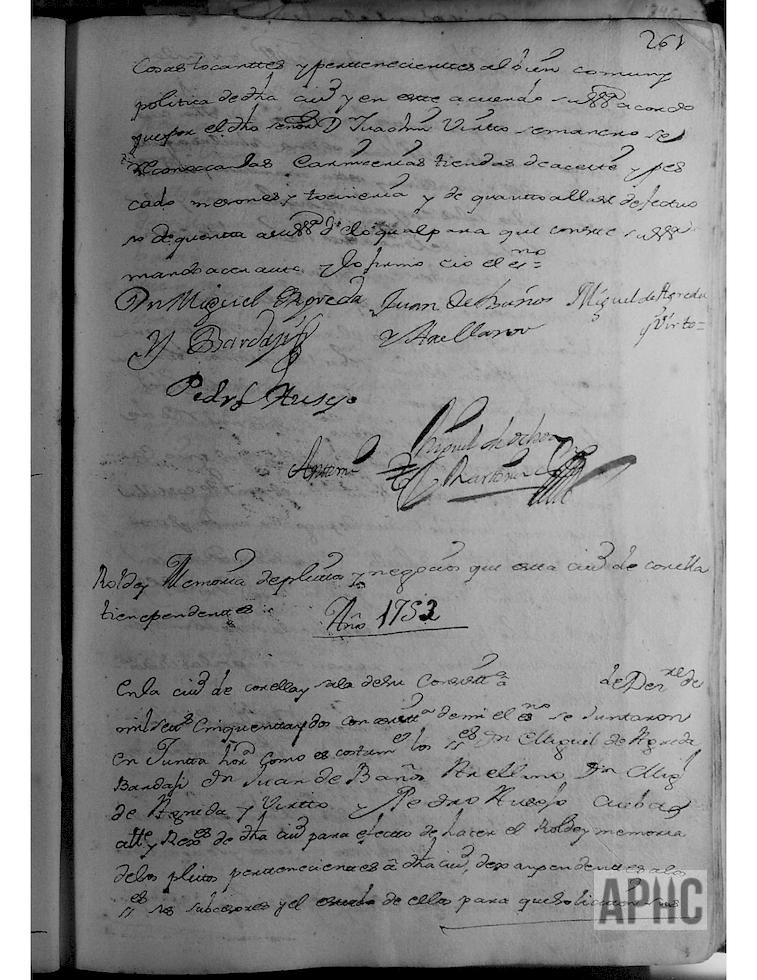 261
Cosas tocanttes y pertenecientes al bien comun y
politica de dha ciud y en este acuerdo su SSª acordo
que por el dho señor Dn Juachin Virto semanero se
reconozcan las Carnicerias tiendas de aceite y pes
cado mesones y tocineria y de quantto allase defectuo
so de quentta a su SSª de lo qual para que conste su SSª
mando acer auto y lo firmo cio el esno=
Dn Miguel Agreda Juan de Baños Miguel de Agreda
y Bardaji y Arellano y Virto=
Pedro Ausejo
Antemi Miguel de Ochoa
Rol de y Memoria de pleitos y negocios que esta ciud de corella
tiene pendentes
Año 1752
En la ciud de corella y sala de su Consistta de
mil setts Cinquentta y dos con asistta de mi el esno se Juntaron
en Juntta como es costumbre los Sres Dn Miguel de Agreda
Bardaji Dn Juan de Baños Arellano Dn Migl
de Agreda y Virtto y Pedro Ausejo
attte y Rexres de dha ciud para efectto de hacer el Rolde y memoria
de los pleitos pertenecientes a dha ciud, dexan pendenttes a los
Sres sus subcesores y el estado de ellos para que
APHC